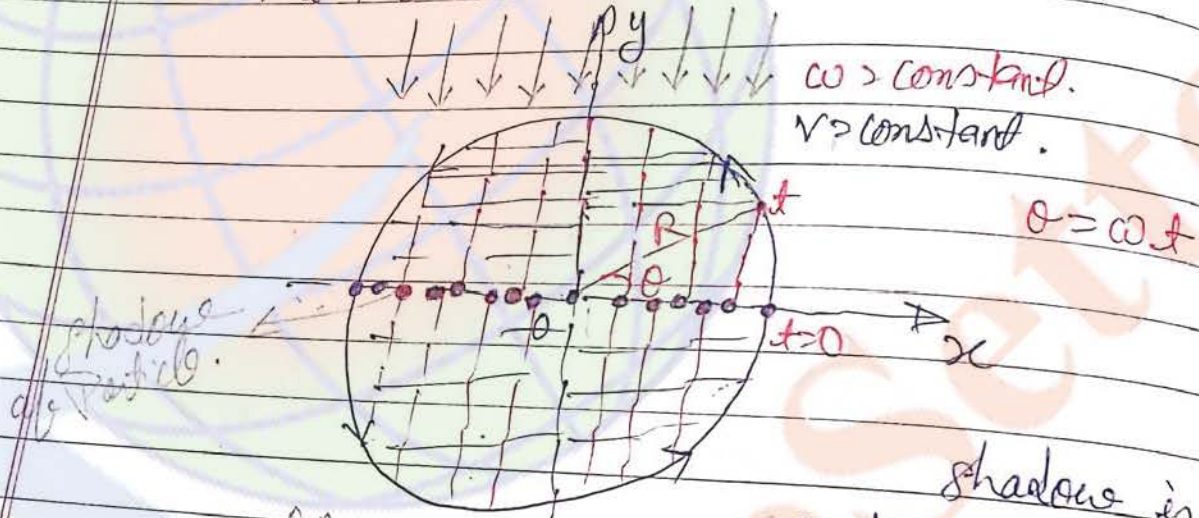 y
ω > constant.
v > constant.
t
R
θ
θ = ωt
0
t=0
x
shadow
of Particle.
shadow is